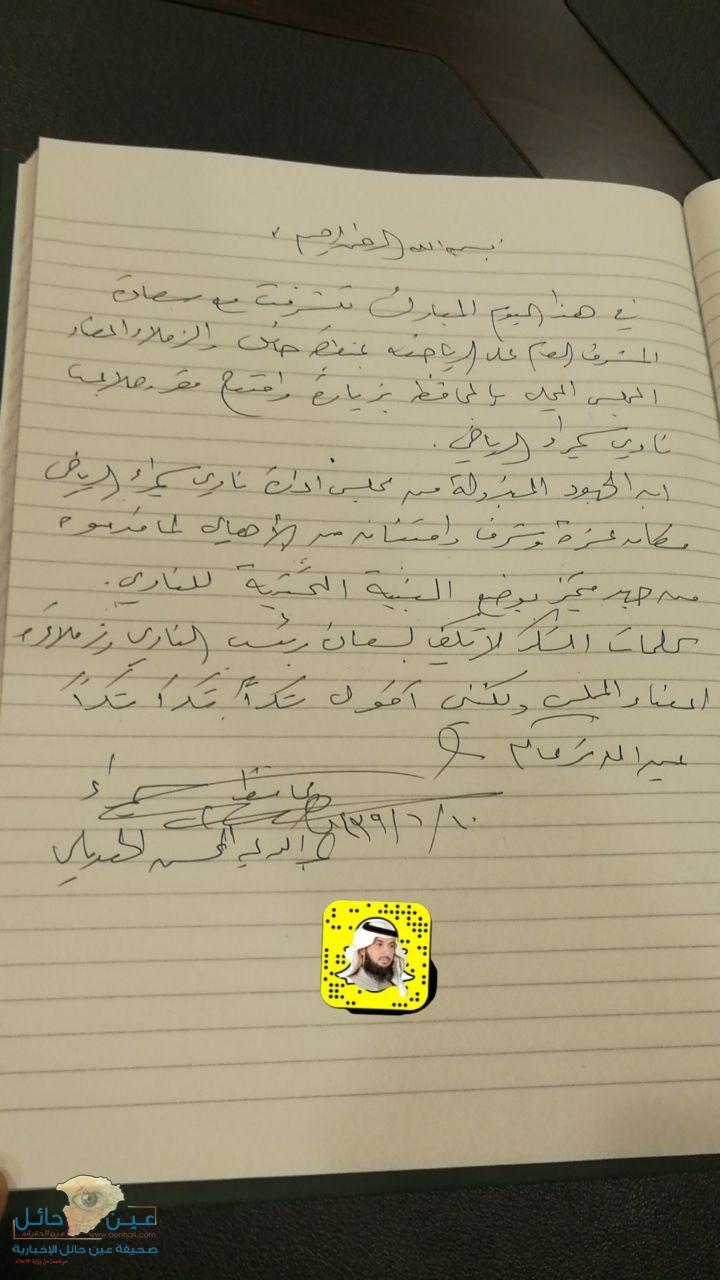 بسم الله الرحمن الرحيم ،
في هذا اليوم المبارك تشرفت مع سعادة
المشرف العام على الرياضة بمنطقة حائل والزملاء أعضاء
المجلس المحلي بالمحافظة بزيارة وافتتاح مقر وملاعب
نادي سميراء الرياضي .
إن الجهود المبذولة من مجلس إدارة نادي سميراء الرياضي
مكان عزة وشرف وامتنان من الأهالي لما قدموه
من جهد مميز بوضع البنية التحتية للنادي .
كلمات الشكر لا تكفي لسعادة رئيس النادي وزملاؤه
أعضاء المجلس ولكنني أقول شكراً شكراً شكراً
محافظ سميراء
١٤٣٩/٦/١٠
عين حائل
www.aenhail.com
صحيفة عين حائل الإخبارية